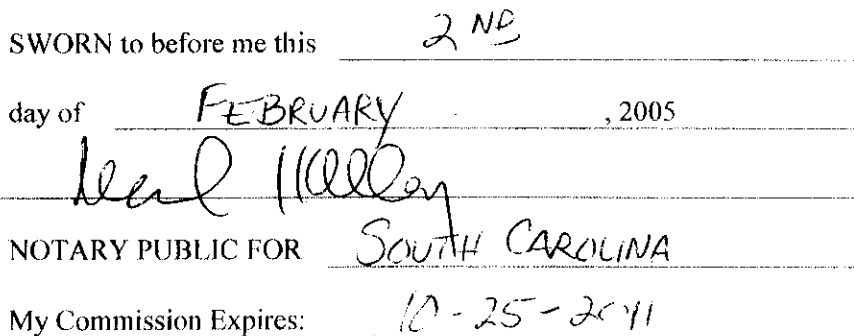 SWORN to before me this 2ND
day of FEBRUARY, 2005
NOTARY PUBLIC FOR SOUTH CAROLINA
My Commission Expires: 10-25-2011